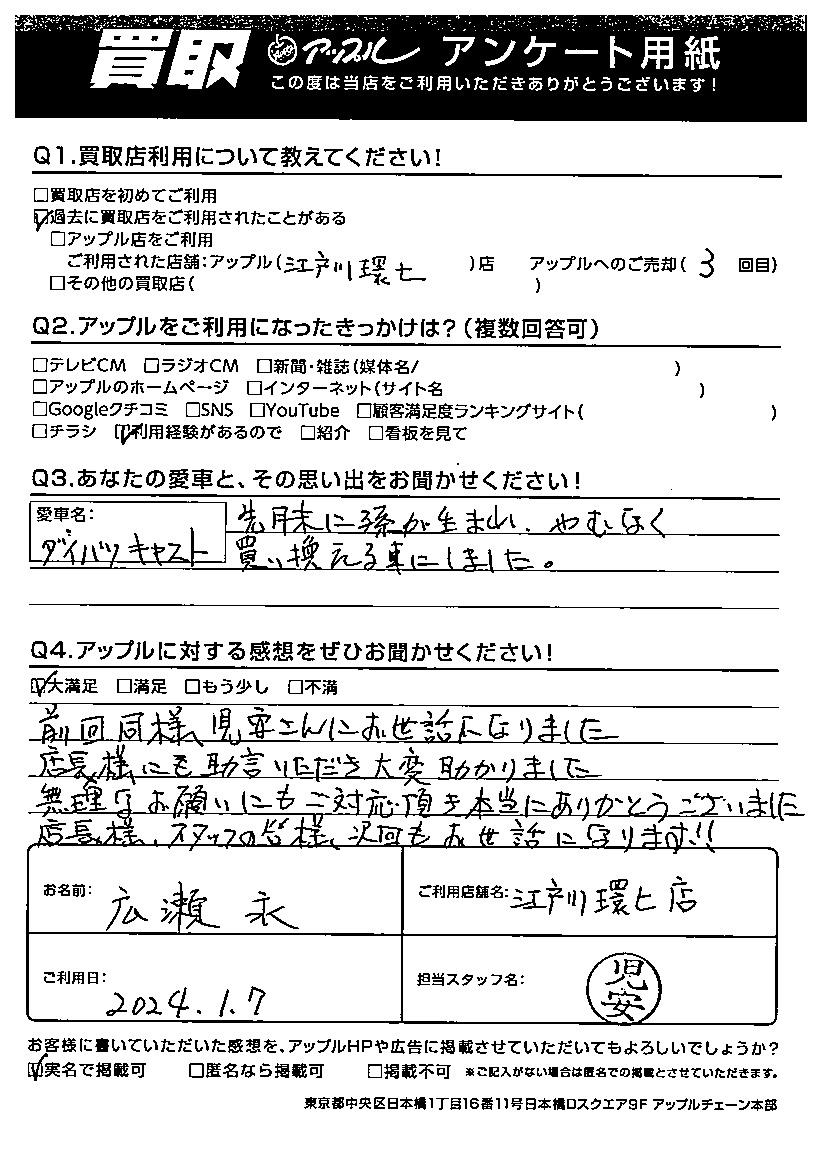 買取 アップル アンケート用紙
この度は当店をご利用いただきありがとうございます！
Q1.買取店利用について教えてください！
□買取店を初めてご利用
☑過去に買取店をご利用されたことがある
□アップル店をご利用
ご利用された店舗：アップル（江戸川環七）店 アップルへのご売却（3回目）
□その他の買取店（ ）
Q2.アップルをご利用になったきっかけは？（複数回答可）
□テレビCM □ラジオCM □新聞・雑誌（媒体名/ ）
□アップルのホームページ □インターネット（サイト名 ）
□Googleクチコミ □SNS □YouTube □顧客満足度ランキングサイト（ ）
□チラシ ☑利用経験があるので □紹介 □看板を見て
Q3.あなたの愛車と、その思い出をお聞かせください！
愛車名：
ダイハツキャスト
先月末に孫が生まれ、やむなく
買い換える事にしました。
Q4.アップルに対する感想をぜひお聞かせください！
☑大満足 □満足 □もう少し □不満
前回同様、児安さんにお世話になりました
店長様にも助言いただき大変助かりました
無理なお願いにもご対応頂き本当にありがとうございました
店長様、スタッフの皆様、次何もお世話になります!!
お名前：広瀬 永
ご利用店舗名：江戸川環七店
ご利用日：2024.1.7
担当スタッフ名：児安
お客様に書いていただいた感想を、アップルHPや広告に掲載させていただいてもよろしいでしょうか？
☑実名で掲載可 □匿名なら掲載可 □掲載不可 ※ご記入がない場合は匿名での掲載とさせていただきます。
東京都中央区日本橋1丁目16番11号日本橋ロスクエア9F アップルチェーン本部